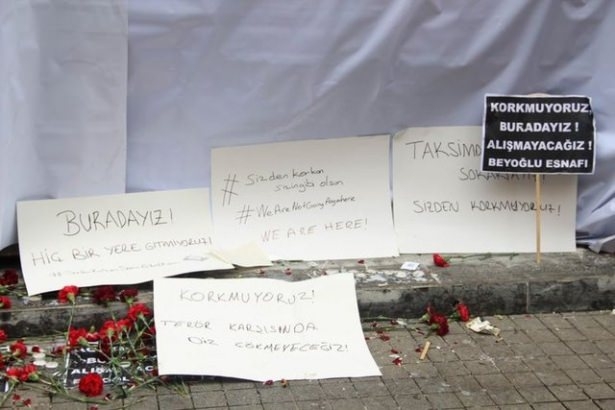 KORKMUYORUZ
BURADAYIZ !
ALIŞMAYACAĞIZ !
BEYOĞLU ESNAFI
TAKSİMD
SOKAKTAYIZ
SİZDEN KORKMUYORUZ!
# Sizden korkan
sizingibi olsun
#WeAreNotGoingAnywhere
WE ARE HERE!
BURADAYIZ!
HİÇ BİR YERE GİTMİYORUZ!
KORKMUYORUZ!
TERÖR KARŞISINDA
DİZ ÇÖKMEYECEĞİZ!